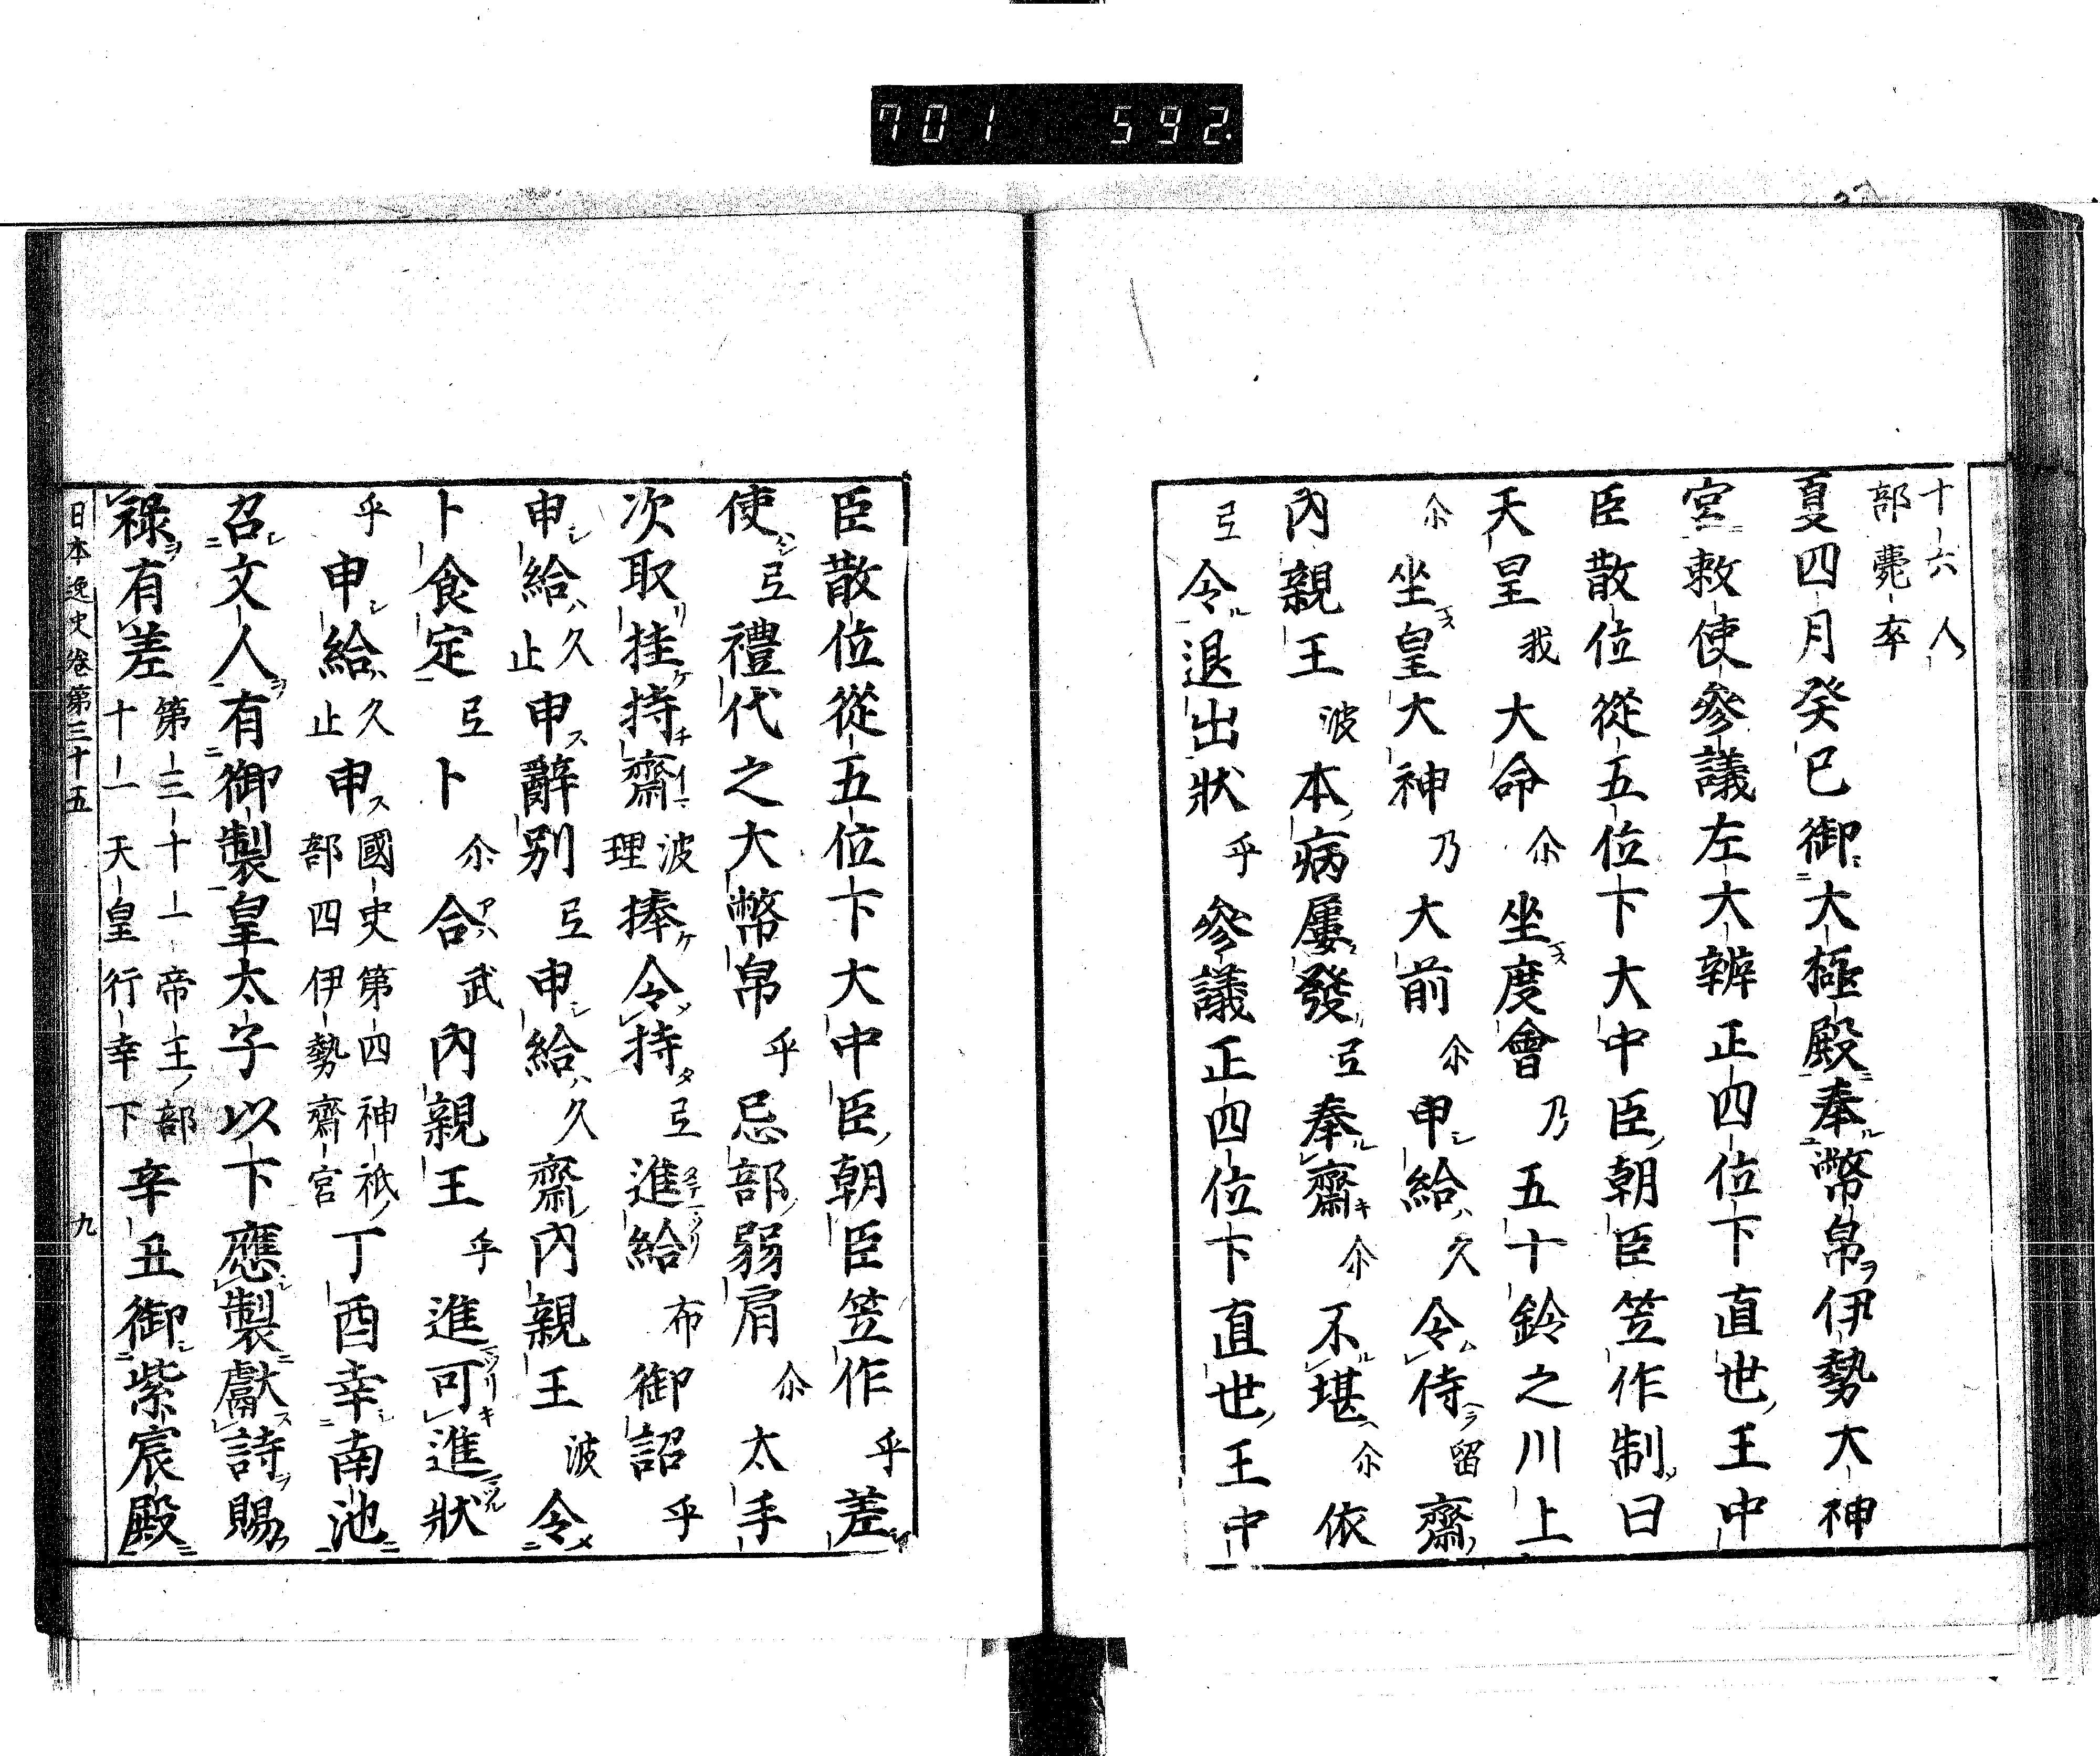 701 592
十六人
部薨卒
夏四月癸巳御大極殿奉幣帛伊勢大神
宮敕使參議左大辨正四位下直世王中
臣散位從五位下大中臣朝臣笠作制曰
天皇我大命尒坐度會乃五十鈴之川上
尒坐皇大神乃大前尒申給久令侍留齋
內親王波本病屢發弖奉齋尒不堪尒依
弖令退出狀乎參議正四位下直世王中
臣散位從五位下大中臣朝臣笠作乎差
使弖禮代之大幣帛乎忌部弱肩尒太手
次取挂持齋波理捧令持弖進給布御詔乎
申給久止申辭別弖申給久齋內親王波令
卜食定弖卜尒合武內親王乎進可進狀
乎申給久止申國史第四神祇部四伊勢齋宮丁酉幸南池
召文人有御製皇太子以下應製獻詩賜
祿有差第三十一帝王部十一天皇行幸下辛丑御紫宸殿
日本逸史卷第三十五 九